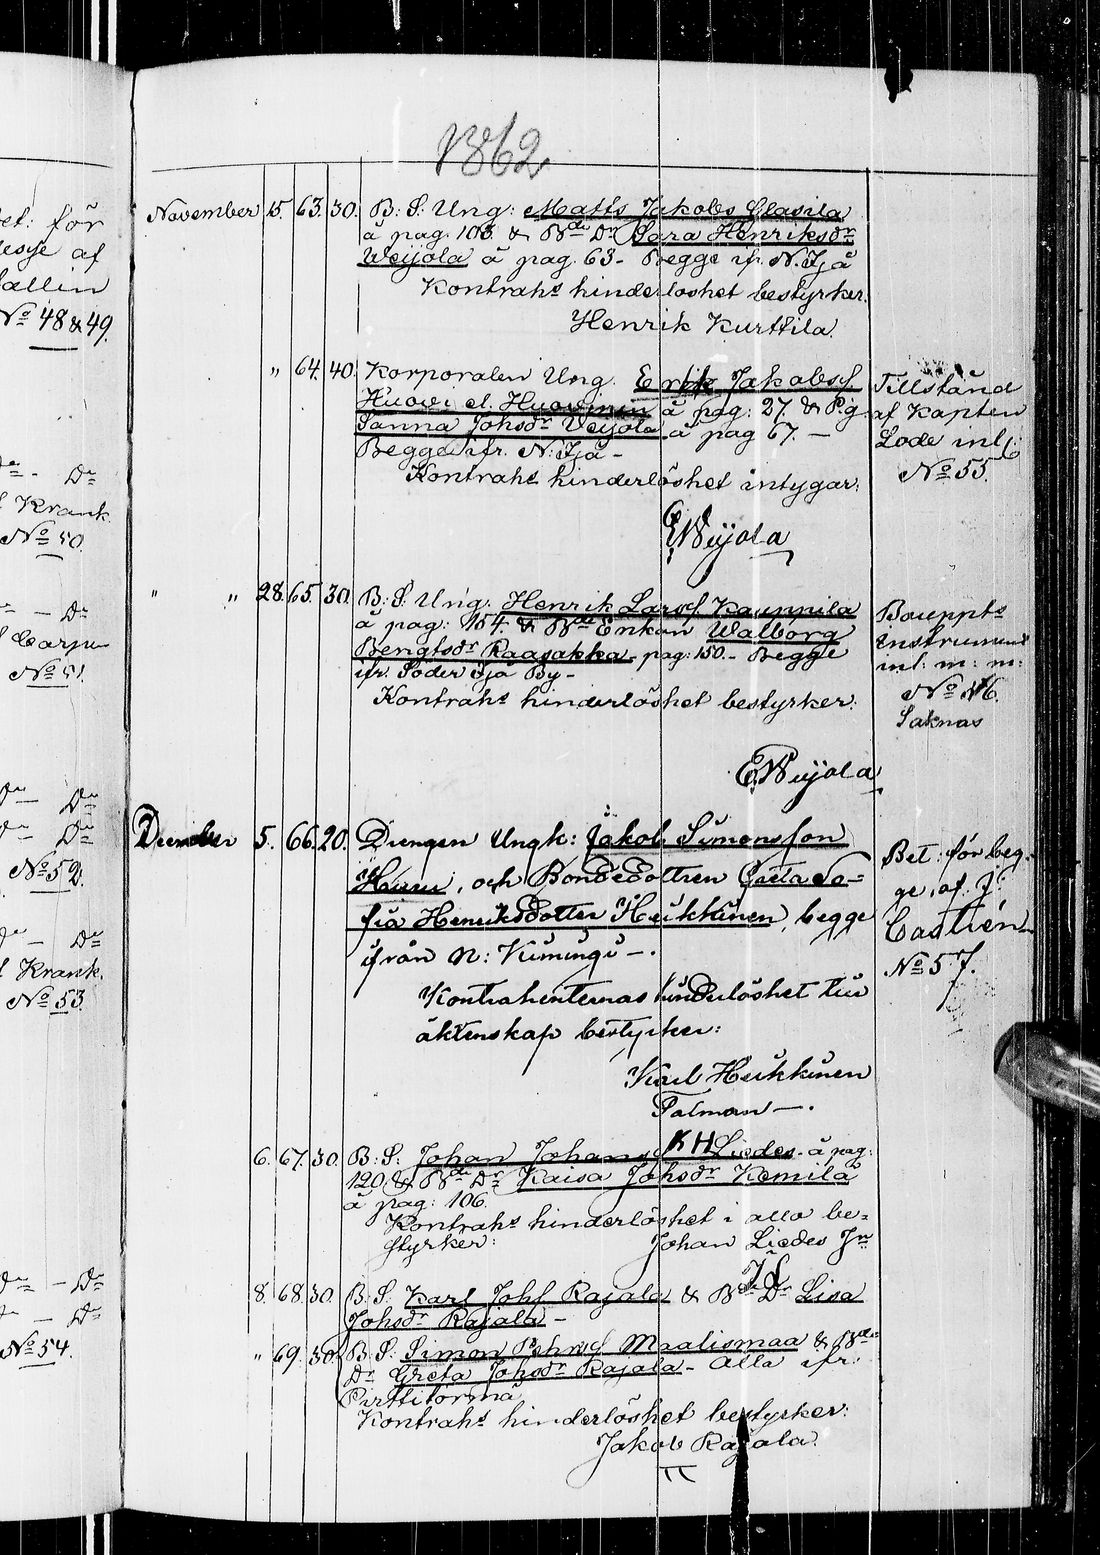 1862
et: för
af
allin
No 48 & 49.
De - Dr
Krank.
No 50
- Dr
Carpe
No 51.
De Dr
De - Dr
No 52.
De - Dr
Krank.
No 53
De - Dr
- Dr
No 54.
November 15. 63. 30. B: S: Ung: Matts Jakobs Glasila
å pag. 103 & Bde Dr Sara Henriksdr
Weijola å pag. 63 - Begge ifr. N. Ijå
Kontrahs hinderlöshet bestyrker.
Henrik Kurttila.
" 64. 40. Korporalen Ung. Erik Jakobsf.
Huovi el. Huovinen å pag: 27. & Pig.
Sanna Johsdr Weijola å pag 67. —
Begge ifr. N: Ijå -
Kontrahs hinderlöshet intygar:
EWeijola
Tillstånd
af Kapten
Lode inl:
No 55.
" " 28. 65. 30. B: S: Ung. Henrik Larsf Kauppila
å pag: 154. & Bde Enkan Walborg
Bengtsdr Raasakka pag: 150. - Begge
ifr. Söder Ijå By -
Kontrahs hinderlöshet bestyrker:
EWeijola
Bouppts
instrument
inl: m: m:
No 56.
Saknas
December 5. 66. 20. Drengen Ungk: Jakob Simonsson
, och Bondedottren Greta So=
fia Henriksdotter Heikkinen, begge
ifrån N: Kiimingi —.
Kontrahenternas hinderlöshet till
äktenskap bestyrker:
Karl Heikkinen
Talman —.
KH
Bet: för beg=
ge, af J:
Castrén
No 57.
6. 67. 30. B: S: Johan Johansf Liedes å pag:
120 & Bde Dr Kaisa Johsdr Kemilä
å pag: 106.
Kontrahs hinderlöshet i allo be=
styrker:
Johan Liedes Jr
JL
8. 68. 30. B: S: Karl Johsf Rajala & Be Dr Lisa
Johsdr Rajala -
" 69. 30. B: S: Simon Pehrsf Maalismaa & Bde
Dr Greta Johsdr Rajala - Alla ifr:
Pirttitörmä
Kontrahs hinderlöshet bestyrker:
Jakob Rajala.